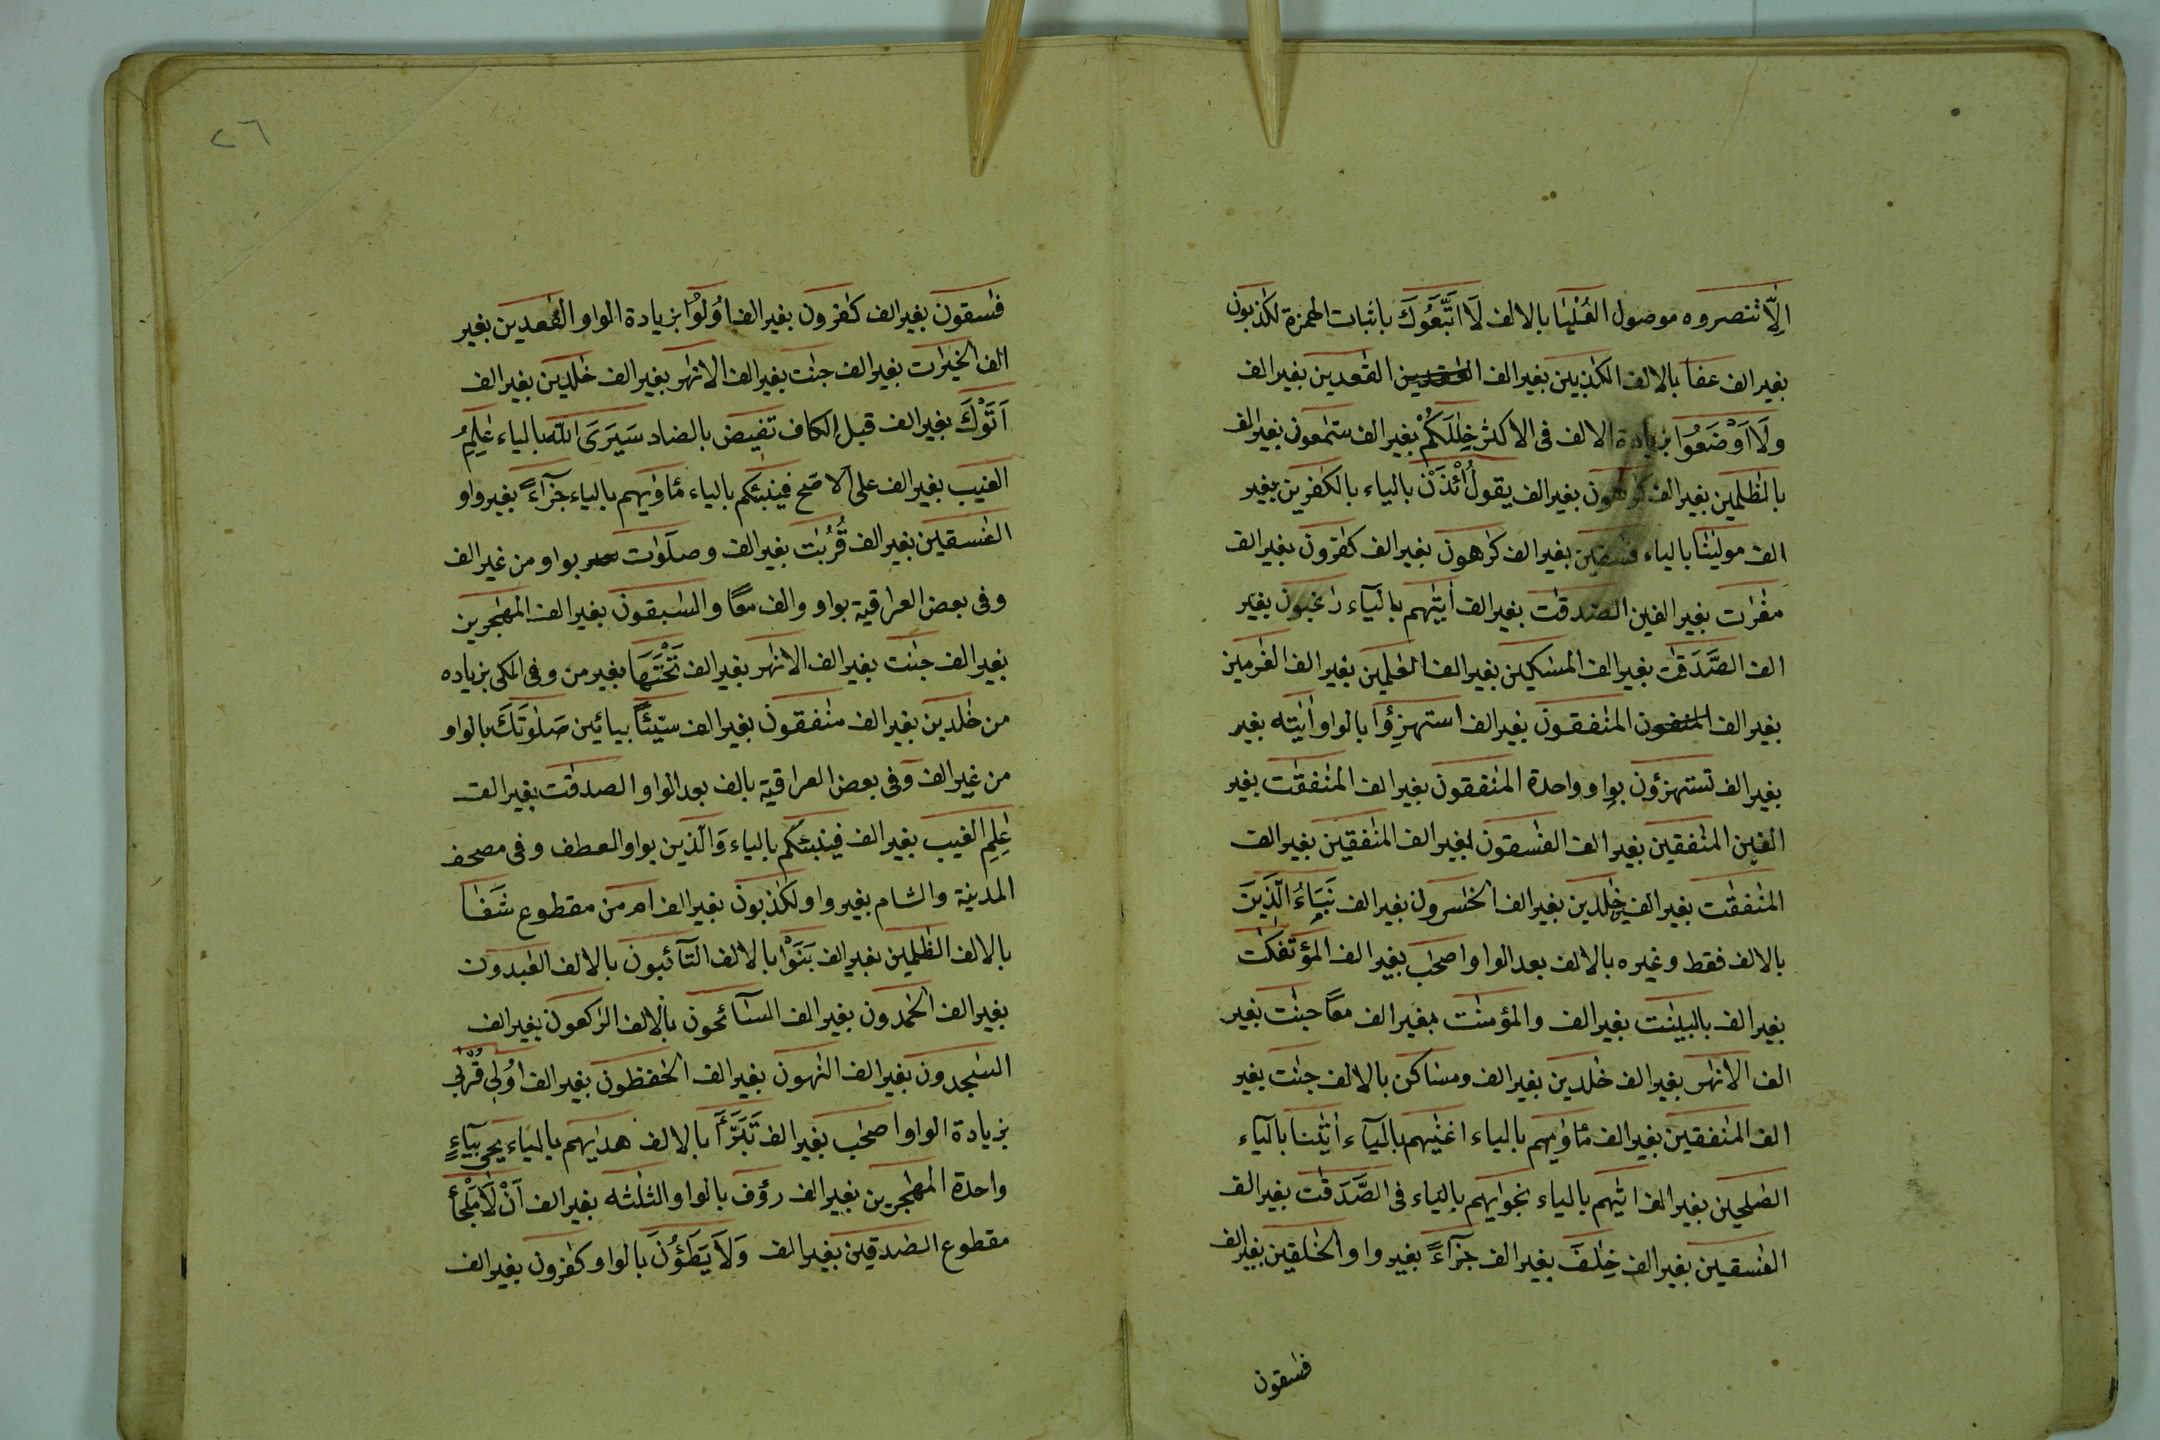 اِلّا تنصروه موصول العُلْيَا بالالف لَا اتَّبَعُوكَ باثبات الهمزة لكٰذبون
بغير الف عفا بالالف الكٰذبين بغير الف القٰعدين بغير الف
ولَا اَوْضَعُوا بزيادة الالف فى الاكثر خِلٰلَكُمْ بغير الف سمّٰعون بغير الف
بالظٰلمين بغير الف كٰرهون بغير الف يقولُ ائْذَنْ بالياء بالكٰفرين بغير
الف موليٰنا بالياء فٰسقين بغير الف كٰرهون بغير الف كٰفرون بغير الف
مغٰرٰت بغير الفين الصدقٰت بغير الف اٰتٰيهم بالياء رٰغبون بغير
الف الصَّدَقٰت بغير الف المسٰكين بغير الف العٰملين بغير الف الغٰرمين
بغير الف المنٰفقون بغير الف استهزِؤا بالواو اٰيٰته بغير
بغير الف تستهزؤن بواو واحدة المنٰفقون بغير الف المنٰفقٰت بغير
الفين المنٰفقين بغير الف الفٰسقون بغير الف المنٰفقين بغير الف
المنٰفقٰت بغير الفين خٰلدين بغير الف الخٰسرون بغير الف نَبَاءُ الَّذِينَ
بالالف فقط وغيره بالالف بعد الواو اصحٰب بغير الف المؤتفكٰت
بغير الف بالبينٰت بغير الف والمؤمنٰت بغير الف معًا جنٰت بغير
الف الانهٰر بغير الف خٰلدين بغير الف ومساكن بالالف جنٰت بغير
الف المنٰفقين بغير الف مأوٰيهم بالياء اغنٰيهم بالياء اٰتٰىنا بالياء
الصٰلحين بغير الف اٰتٰيهم بالياء نجوٰيهم بالياء فى الصَّدَقٰت بغير الف
الفٰسقين بغير الف خِلٰفَ بغير الف جزآءً بغير واو الخٰلفين بغير الف
فٰسقون
٢٦
فٰسقون بغير الف كٰفرون بغير الف اُولُوْا بزيادة الواو القٰعدين بغير
الف الخيرٰت بغير الف جنٰت بغير الف الانهٰر بغير الف خٰلدين بغير الف
اَتَوْكَ بغير الف قبل الكاف تفيض بالضاد سَيَرَى الله بالياء عٰلِمِ
الغيب بغير الف على الاصّح فينبئكم بالياء مأوٰيهم بالياء جزآءً بغير واو
الفٰسقين بغير الف قُرُبٰت بغير الف وصلَوٰت بواو من غير الف
وفى بعض العراقية بواو والف معًا والسٰبقون بغير الف المهٰجرين
بغير الف جنٰت بغير الف الانهٰر بغير الف تَحْتَهَا بغير من وفى المكى بزياده
من خٰلدين بغير الف منٰفقون بغير الف سيّئًا بيائين صَلٰوتَكَ بالواو
من غير الف وفى بعض العراقية بالف بعد الواو الصدقٰت بغير الف
عٰلِمِ الغيب بغير الف فينبئكم بالياء وَالّذين بواو العطف وفى مصحف
المدينة والشام بغير واو لكٰذبون بغير الف ام من مقطوع شَفَا
بالالف الظٰلمين بغير الف بَنَوْا بالالف التآئبون بالالف العٰبدون
بغير الف الحٰمدون بغير الف السآئحون بالالف الرٰكعون بغير الف
السٰجدون بغير الف النٰهون بغير الف الحٰفظون بغير الف اُولِى قُرْبٰى
بزيادة الواو اصحٰب بغير الف تَبَرَّأَ بالالف هدٰيهم بالياء يحى بيآءٍ
واحدة المهٰجرين بغير الف رؤف بالواو الثلٰثه بغير الف اَنْ لَا مَلْجَأ
مقطوع الصٰدقين بغير الف وَلَا يَطَؤُنَ بالواو كفرون بغير الف